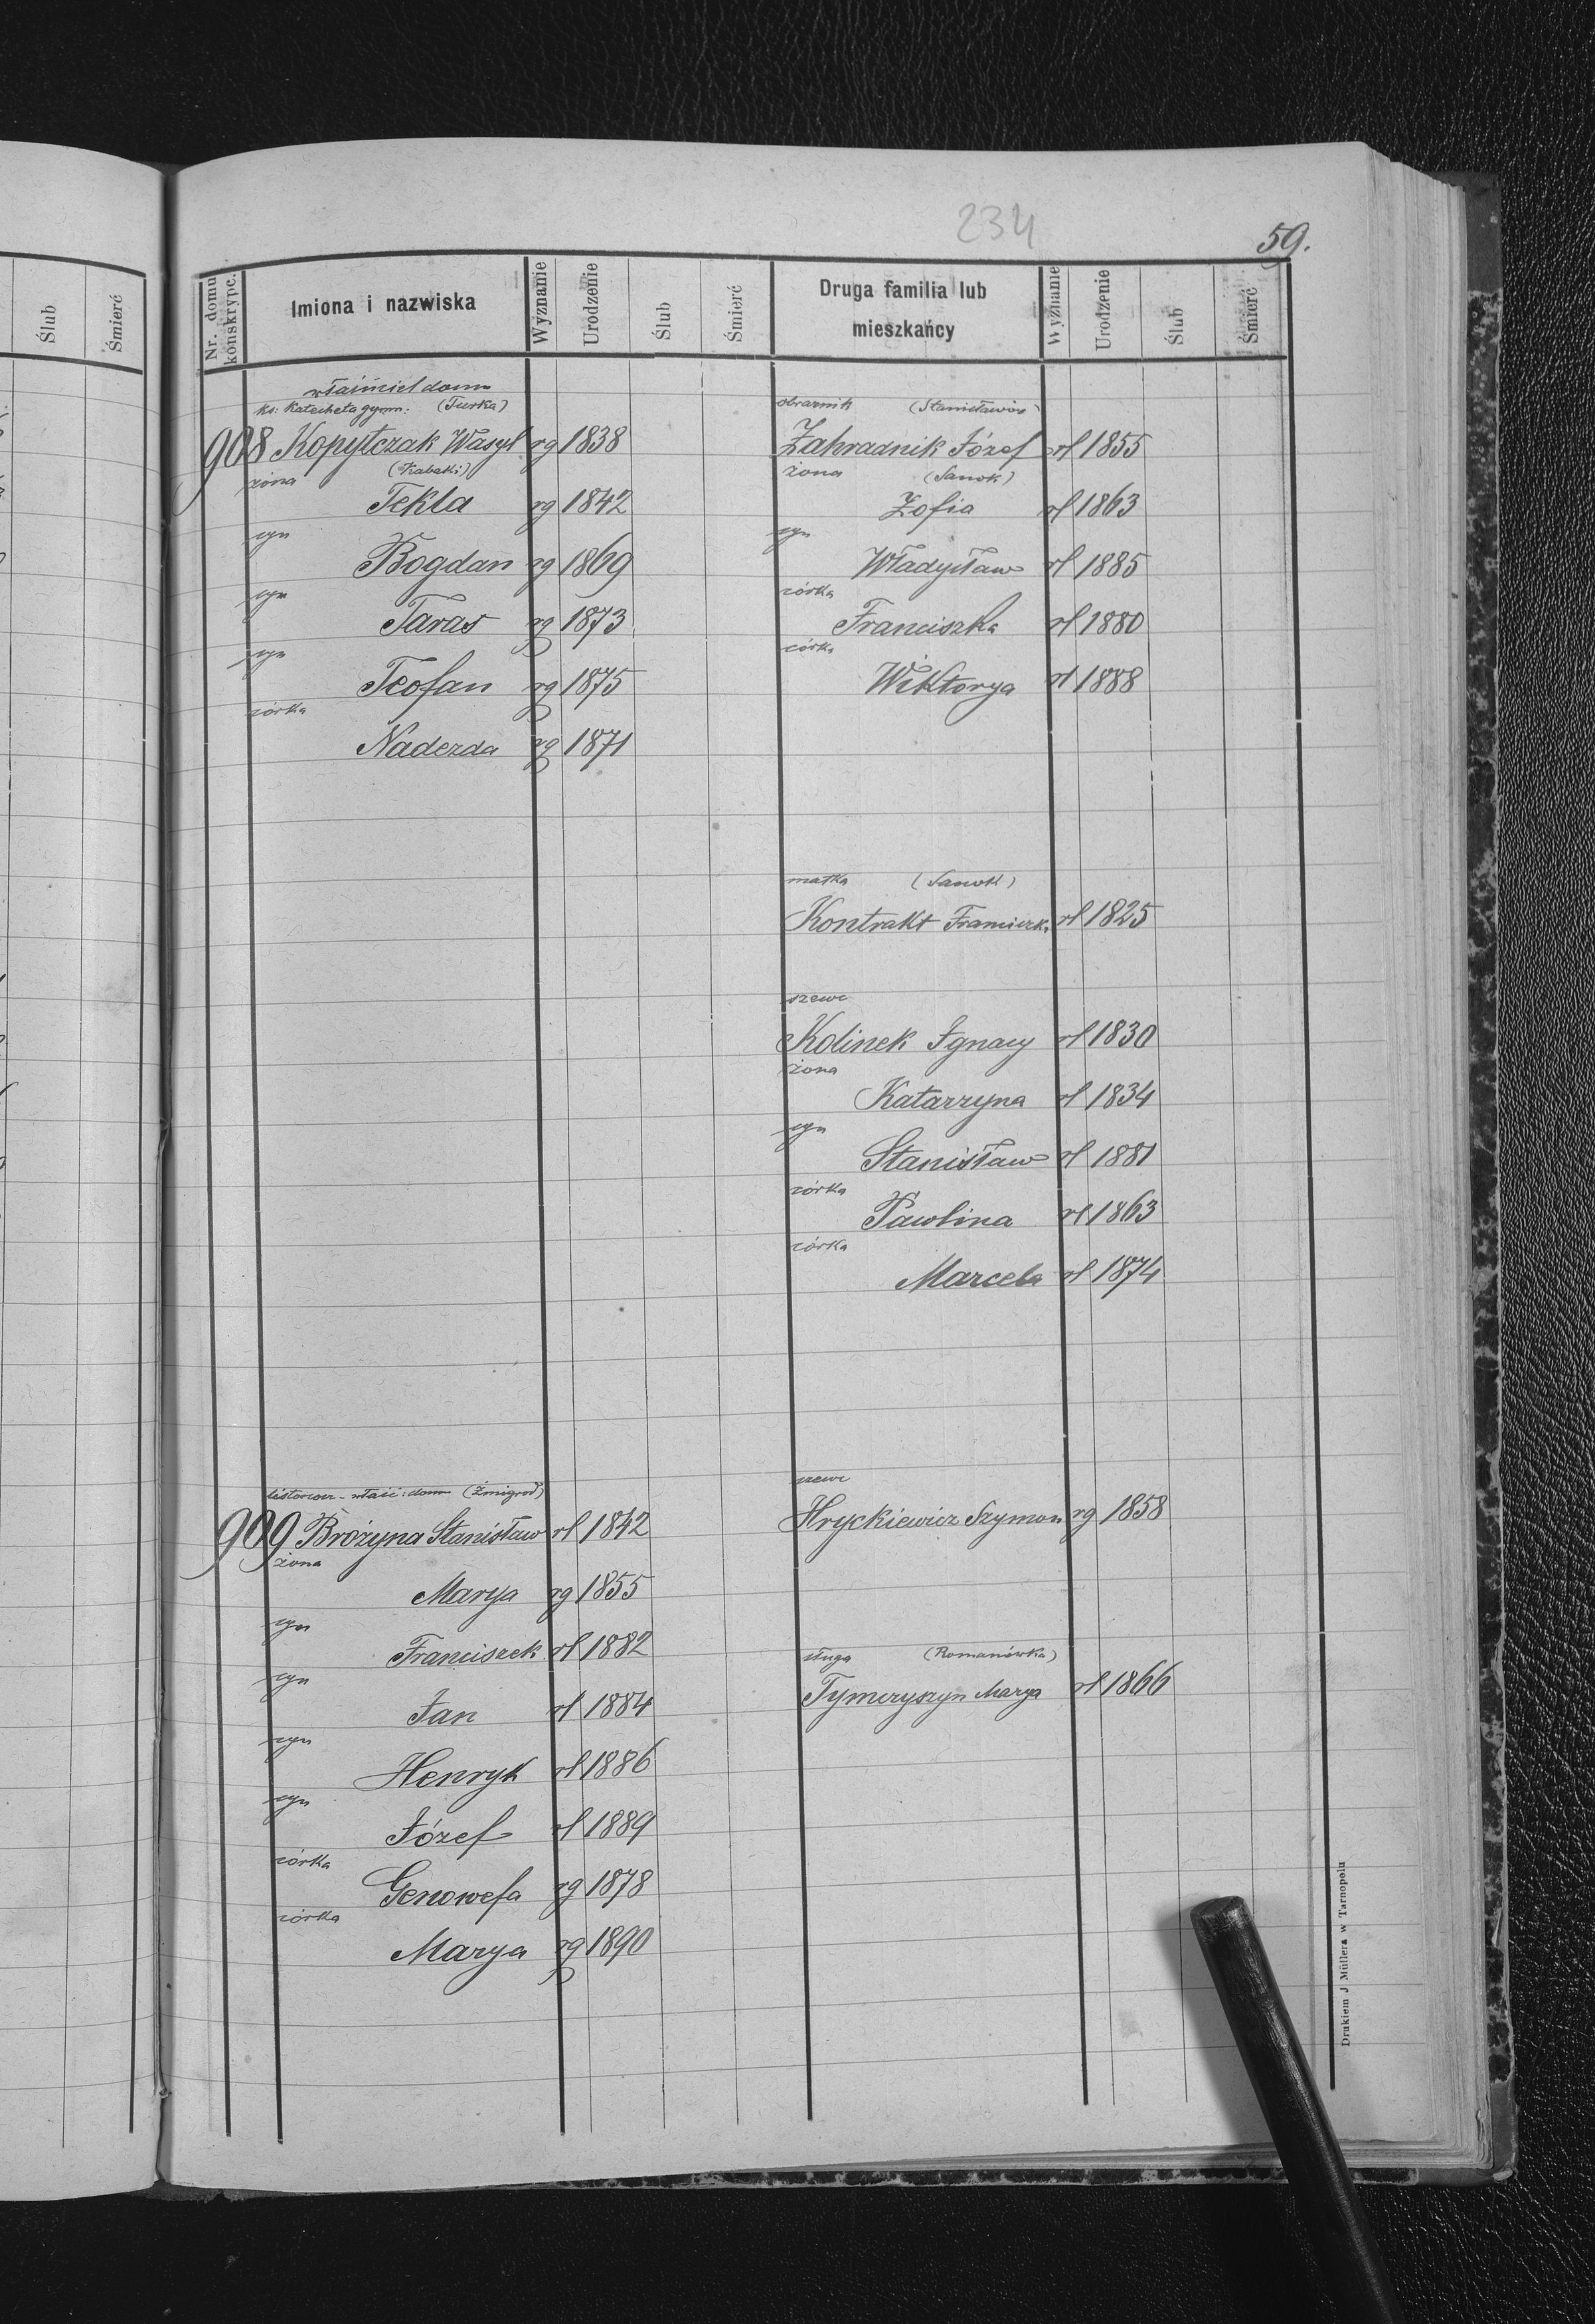 234
59.
Ślub
Śmierć
Nr. domu konskrypc.
Imiona i nazwiska
Wyznanie
Urodzenie
Ślub
Śmierć
Druga familia lub
mieszkańcy
Wyznanie
Urodzenie
Ślub
Śmierć
właściciel domu
ks: Katecheta gymn: (Turka)
908 Kopytczak Wasyl rg 1838
żona
Tekla rg 1842
syn
Bogdan rg 1869
syn
Taras rg 1873
syn
Teofan rg 1875
córka
Naderda rg 1871
(Stanisławów)
Zahradnik Józef rl 1855
żona (Sanok)
Zofia rl 1863
syn
Władysław rl 1885
córka
Franciszka rl 1880
córka
Wiktorya rl 1888
matka (Sanok)
Kontrakt Franciszka rl 1825
szewc
Kolinek Ignacy rl 1830
żona
Katarzyna rl 1834
syn
Stanisław rl 1881
córka
Pawlina rl 1863
córka
Marcela rl 1874
listonosz - właść: domu (Żmigrod)
909 Brożyna Stanisław rl 1842
żona
Marya rg 1855
syn
Franciszek rl 1882
syn
Jan rl 1884
syn
Henryk rl 1886
syn
Józef rl 1889
córka
Genowefa rg 1878
córka
Marya rg 1890
szewc
Hryckiewicz Szymon rg 1858
sługa (Romanówka)
Tymczyszyn Marya rl 1866
Drukiem J Müllera w Tarnopolu